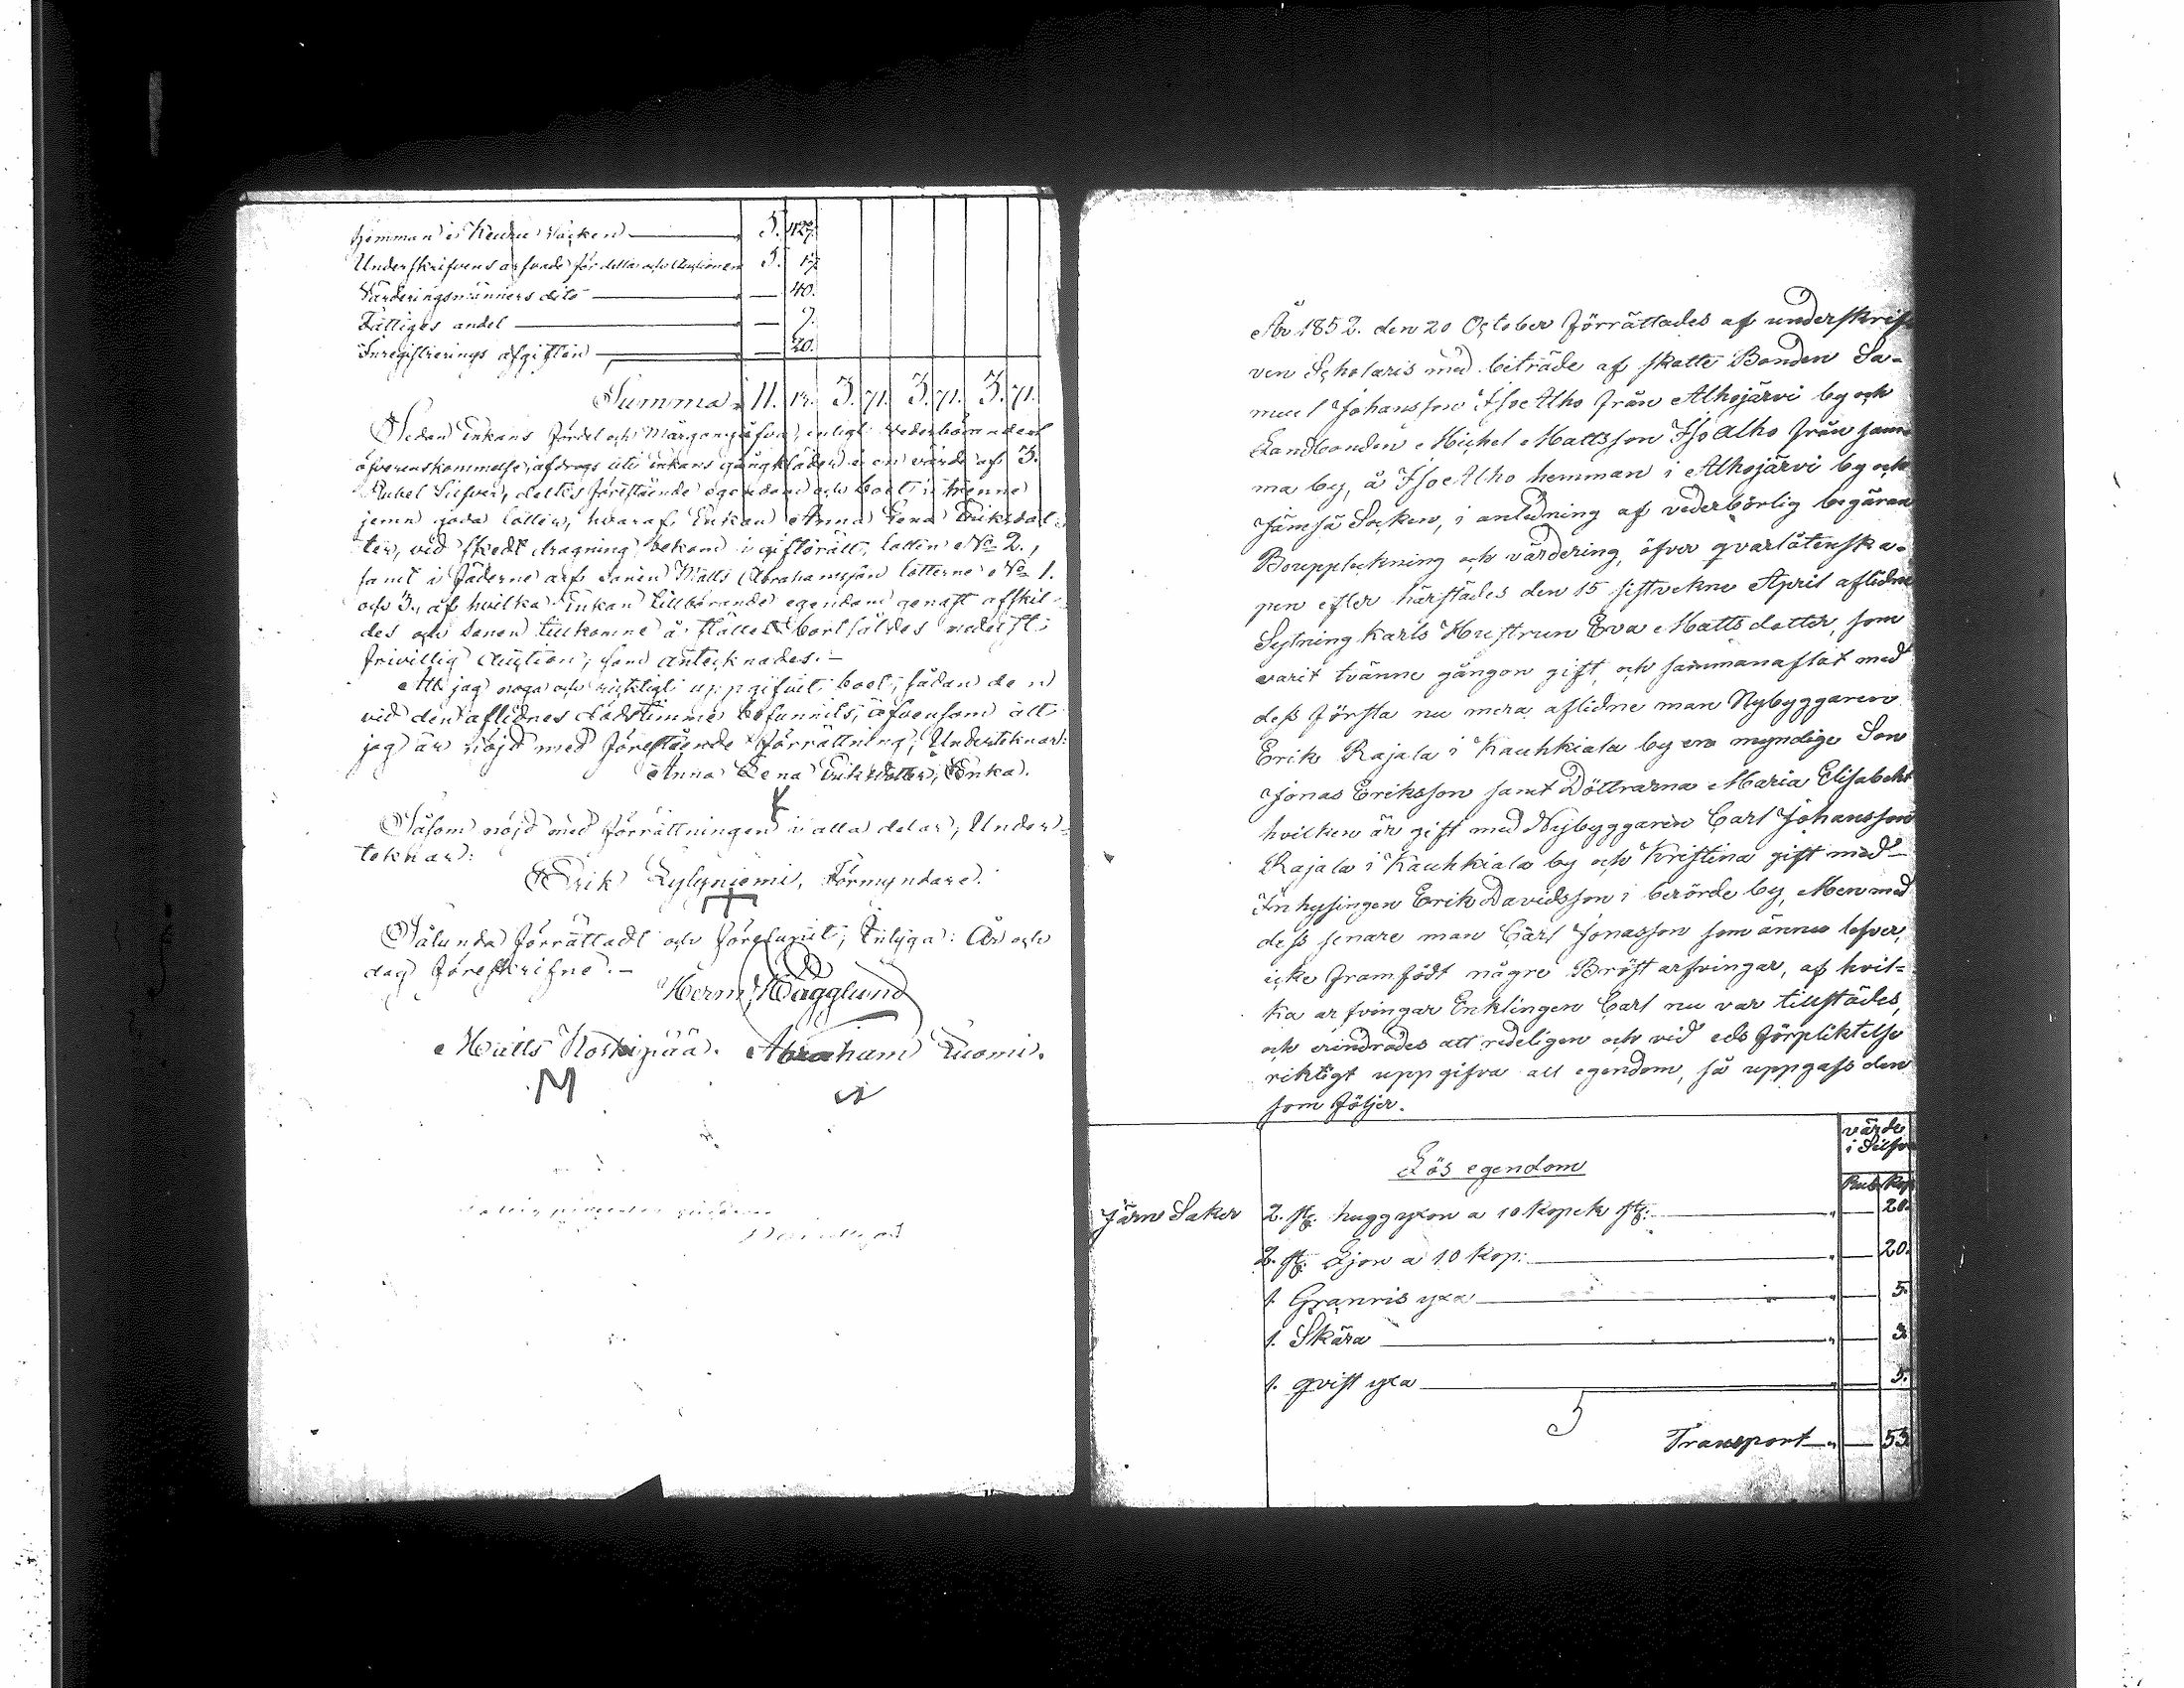 hemman i Keuru Socken 5. 42 3/7.
Underskrifvens arfvode för detta och Auctionen 5. 17.
Värderingsmännens dito — 40.
Fattiges andel — 9.
Inregistrerings afgiften — 20.
Summa 11. 3. 71. 3. 71. 3. 71.
Sedan Enkans fördel och Morgongåfva, enligt vederbörandes
öfverenskommelse, afdrogs uti enkans gångkläder i en värde af 3.
Rubel Silfver, deltes förestående egendom och boet i trenne
jemn goda lotter, hvaraf Enkan Anna Lena Eriksdot-
ter, vid skedt dragning bekom i giftorätt, lotten No 2.,
samt i fäderne arf sonen Matts Abrahamsson lotterne No 1.
och 3., af hvilka Enkan tillhörande egendom genast afskil-
des och sonen tillkomne å stället bortsåldes medelst
frivillig Auction, som antecknades.-
Att jag noga och riktigt uppgifvit boet, sådan den
vid den aflidnes dödstimme befunnits, äfvensom att
jag är nöjd med förestående förrättning, Underteknar:
Anna Lena Eriksdotter, Enka.
Såsom nöjd med förrättningen i alla delar, Under-
teknar:
Erik Lylyniemi, Förmyndare.
Sålunda förrättadt och förelupit, Intyga: År och
dag föreskrifne.-
Herm. Hägglund
Matts Koskipää. Abraham Tuomi.
M
År 1852. den 20 October förrättades af underskrif
ven Scholaris med biträde af skatte Bonden Sa-
muel Johansson Iso Alho från Alhojärvi by och
Landbonden Michel Mattsson Iso Alho från sam-
ma by, å Iso Alho hemman i Alhojärvi by och
Jämsä Socken, i anledning af vederbörlig begäran
Bouppteckning och värdering, öfver qvarlåtenska-
pen efter härstädes den 15 sistvekne April aflidne
Sytning karls Hustrun Eva Mattsdotter, som
varit tvänne gångor gift, och sammanaflat med
dess första nu mera aflidne man Nybyggaren
Erik Rajala i Kauhkiala by en myndige Son
Jonas Eriksson samt Döttrarna Maria Elisabeht
hvilken är gift med Nybyggaren Carl Johansson
Rajala i Kauhkiala by och Kristina gift med
Inhysingen Erik Davidsson i berörde by, Men med
dess senare man Carl Jonasson som ännu lefver,
icke framfödt några Bröst arfvingar, af hvil-
ka arfvingar Enklingen Carl nu var tillstädes,
och erindrades att redeligen och vid eds förpliktelse
riktigt uppgifva all egendom, så uppgafs den
som följer.
värde
i Silfver
Lös egendom
Rub Kop
Järn Saker 2. st. huggyxor a 10 kopek st: — 20.
2. st. Ljor a 10 kop: — 20.
1. Granris yxa — 5.
1. Skära — 3.
1. qvist yxa — 5.
Transport — 53.